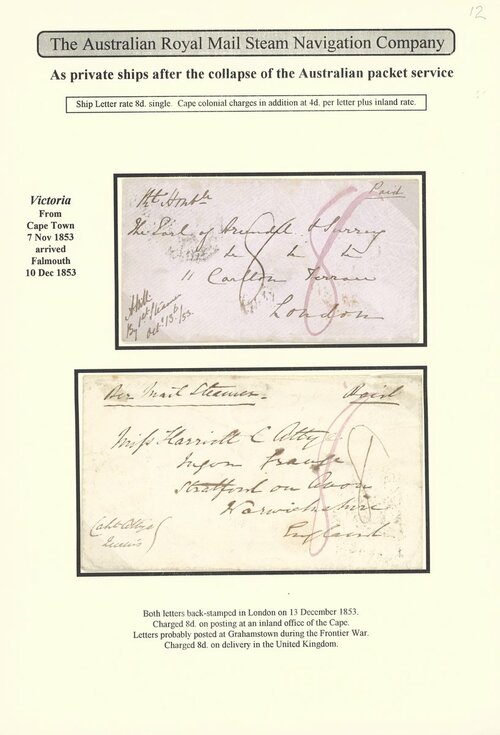 12
The Australian Royal Mail Steam Navigation Company
As private ships after the collapse of the Australian packet service
Ship Letter rate 8d. single. Cape colonial charges in addition at 4d. per letter plus inland rate.
Victoria
From
Cape Town
7 Nov 1853
arrived
Falmouth
10 Dec 1853
Paid
Rt Honble
The Earl of Arundel & Surrey
8 8
11 Carlton Terrace
London
Per Mail Steamer
Paid
Miss Harriett C Attye
Ingon Grange
8 8
Stratford on Avon
Warwickshire
England
Both letters back-stamped in London on 13 December 1853.
Charged 8d. on posting at an inland office of the Cape.
Letters probably posted at Grahamstown during the Frontier War.
Charged 8d. on delivery in the United Kingdom.